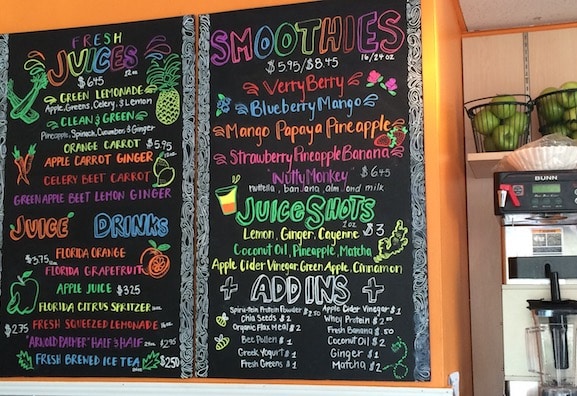 FRESH
JUICES
$6.45
12oz
GREEN LEMONADE
Apple, Greens, Celery & Lemon
CLEAN & GREEN
Pineapple, Spinach, Cucumber & Ginger
ORANGE CARROT $5.95
APPLE CARROT GINGER
CELERY BEET CARROT
GREEN APPLE BEET LEMON GINGER
JUICE DRINKS
FLORIDA ORANGE
$3.75
FLORIDA GRAPEFRUIT
APPLE JUICE $3.25
FLORIDA CITRUS SPRITZER
$2.75 FRESH SQUEEZED LEMONADE
"ARNOLD PALMER" HALF & HALF $2.95
FRESH BREWED ICE TEA $2.50
SMOOTHIES
$5.95/$8.45 16/24oz
Verry Berry
Blueberry Mango
Mango Papaya Pineapple
Strawberry Pineapple Banana
Nutty Monkey $6.45
nuttella, banana, almond milk
JUICE SHOTS
2oz
Lemon, Ginger, Cayenne $3
Coconut Oil, Pineapple, Matcha
Apple Cider Vinegar, Green Apple, Cinnamon
+ ADD INS +
Spiru-tein Protein Powder $2.50
Chia Seeds $1
Organic Flax Meal $2
Bee Pollen $1
Greek Yogurt $1
Fresh Greens $1
Apple Cider Vinegar $1
Whey Protein $2
Fresh Banana $.50
Coconut Oil $2
Ginger $1
Matcha $2
BUNN